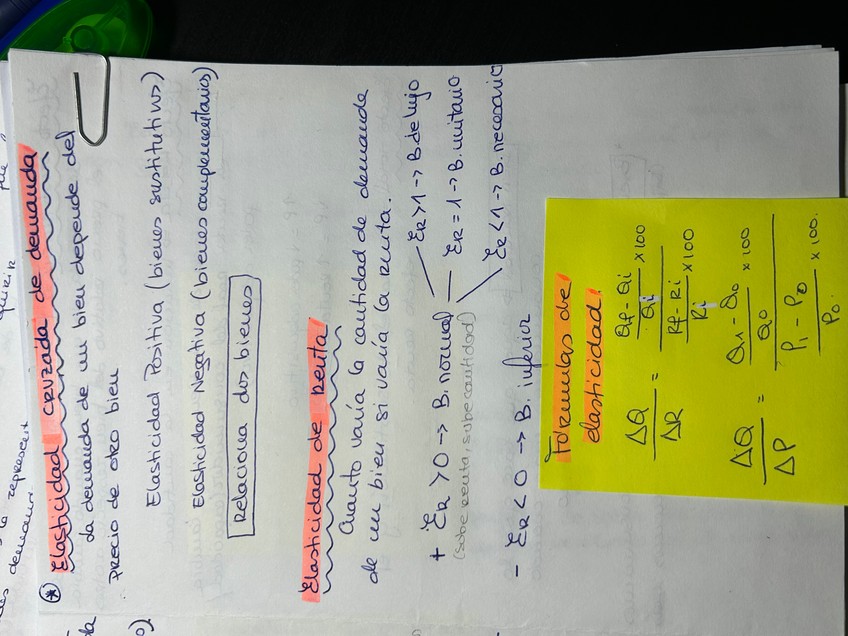 Elasticidad cruzada de demanda
La demanda de un bien depende del
precio de otro bien
Elasticidad Positiva (bienes sustitutivos)
Elasticidad Negativa (bienes complementarios)
Relaciona dos bienes
Elasticidad de renta
Cuanto varía la cantidad de demanda
de un bien si varía la renta.
+ ER > 0 → B. normal
(sube renta, sube cantidad)
ER > 1 → B de lujo
ER = 1 → B. unitario
ER < 1 → B. necesario
- ER < 0 → B. inferior
Fórmulas de
elasticidad:
ΔQ / ΔR = Qf - Qi / Qi × 100 / Rf - Ri / Ri × 100
ΔQ / ΔP = Q1 - Q0 / Q0 × 100 / P1 - P0 / P0 × 100.